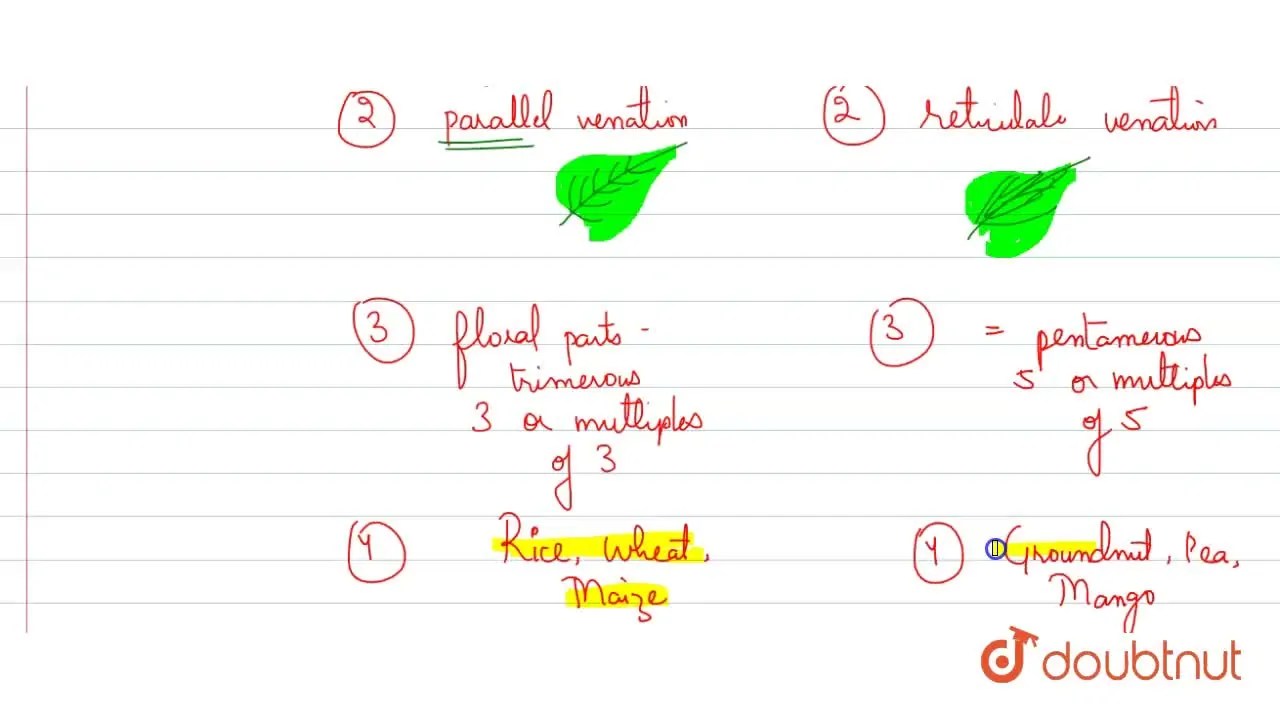 2 parallel venation
2 reticulate venation
3 floral parts -
trimerous
3 or multiples
of 3
3 = pentamerous
5 or multiples
of 5
4 Rice, Wheat,
Maize
4 Groundnut, Pea,
Mango
doubtnut